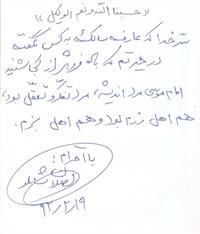 « حسبنا الله و نعم الوکیل »
سرّ خدا که عارف سالک به کس نگفت
در حیرتم که باده فروش از کجا شنید
امام موسی مرد اندیشه، مرد تفکر و تعقل بود،
هم اهل رزم بود و هم اهل بزم.
با احترام؛
۹۲/۲/۱۹